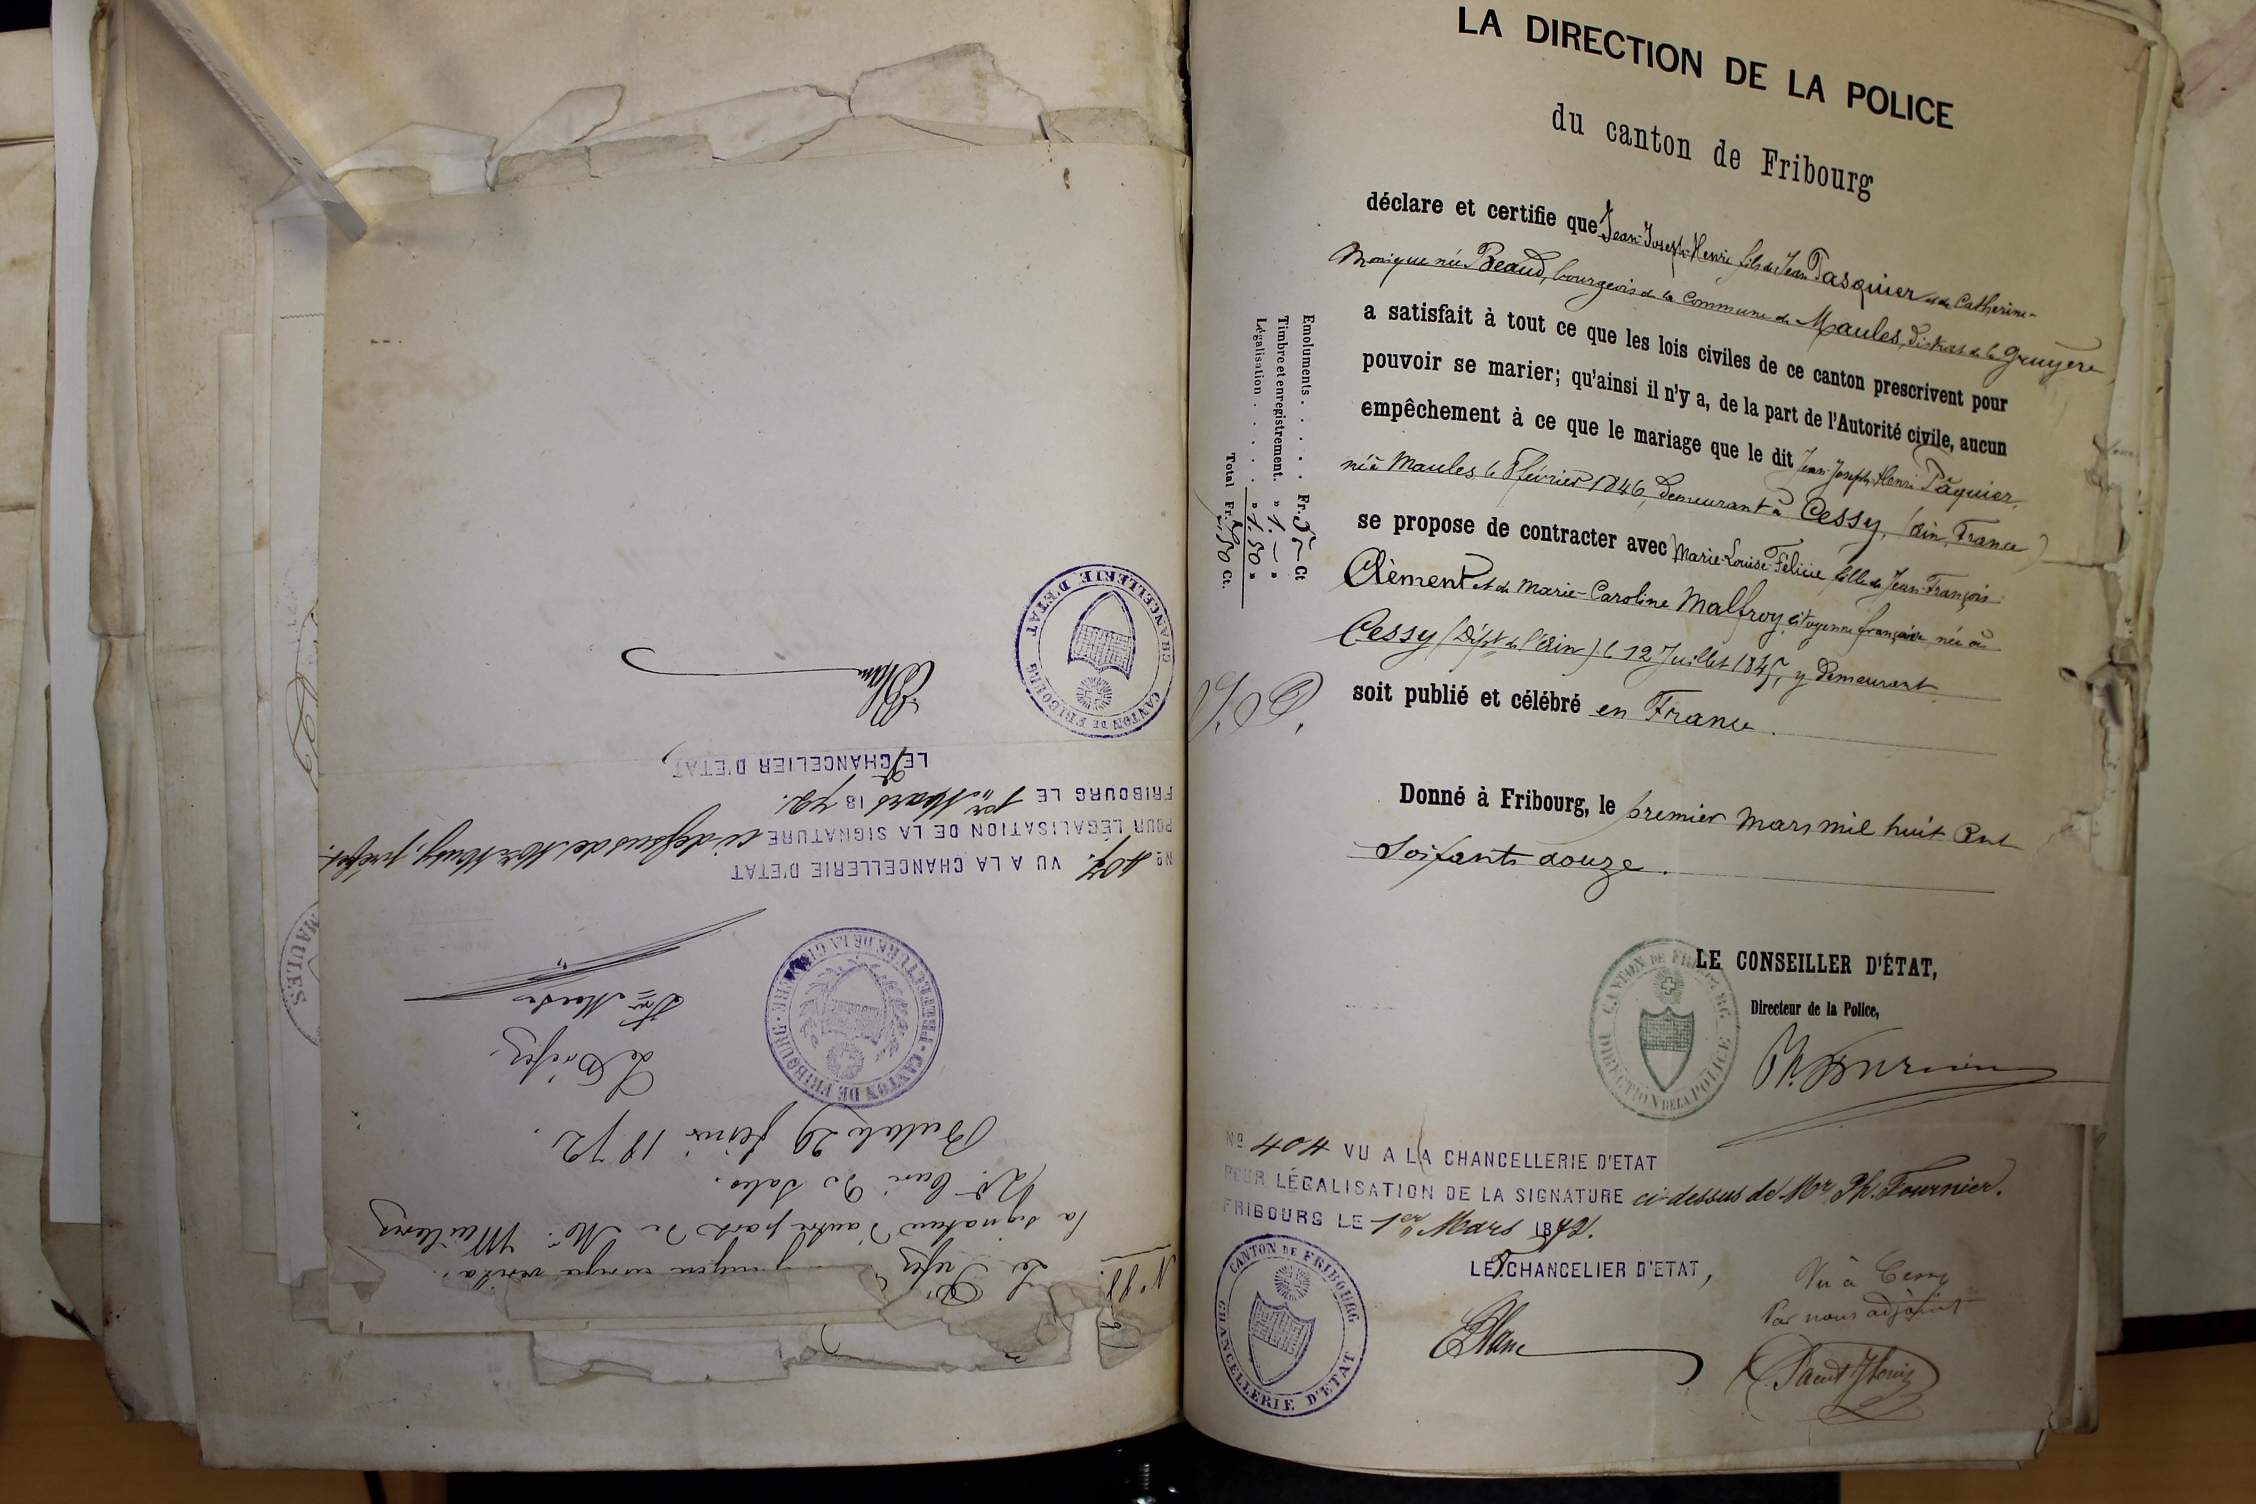 LA DIRECTION DE LA POLICE
du canton de Fribourg
déclare et certifie que Jean-Joseph-Henri fils de Jean Pasquier et de Catherine-
Monique née Beaud, bourgeois de la Commune de Maules, District de la Gruyère
a satisfait à tout ce que les lois civiles de ce canton prescrivent pour
pouvoir se marier; qu'ainsi il n'y a, de la part de l'Autorité civile, aucun
empêchement à ce que le mariage que le dit Jean-Joseph-Henri Pâquier,
né à Maules, le 8 février 1846, demeurant à Cessy, (Ain, France)
se propose de contracter avec Marie-Louise-Félicie fille de Jean-François
Clément et de Marie-Caroline Malfroy, citoyenne française née à
Cessy (Dépt de l'Ain) le 12 Juillet 1845, y demeurant
soit publié et célébré en France.
Donné à Fribourg, le premier mars mil huit Cent
Soixante douze.
LE CONSEILLER D'ÉTAT,
Directeur de la Police,
CANTON DE FRIBOURG
DIRECTION DE LA POLICE
No 404 VU A LA CHANCELLERIE D'ETAT
POUR LÉGALISATION DE LA SIGNATURE ci-dessus de Mr Ph. Fournier.
FRIBOURG LE 1er Mars 1872.
LE CHANCELIER D'ETAT,
CANTON DE FRIBOURG
CHANCELLERIE D'ETAT
Vu à Cessy
Par nous adjoint
Emoluments . . . . . Fr. 5 – Ct
Timbre et enregistrement. » 1. – »
Légalisation . . . . . » 1.50 »
Total Fr. 7.50 Ct.
No 88.
Le Préfet
la signature d'autre part de Mr.
Curé de Sales.
Bulle le 29 février 1872.
Le Préfet
PREFECTURE DE LA GRUYERE
CANTON DE FRIBOURG
No 407. VU A LA CHANCELLERIE D'ETAT
POUR LÉGALISATION DE LA SIGNATURE ci-dessus de préfet.
FRIBOURG LE 1er Mars 1872.
LE CHANCELIER D'ETAT,
CANTON DE FRIBOURG
CHANCELLERIE D'ETAT
MAULES